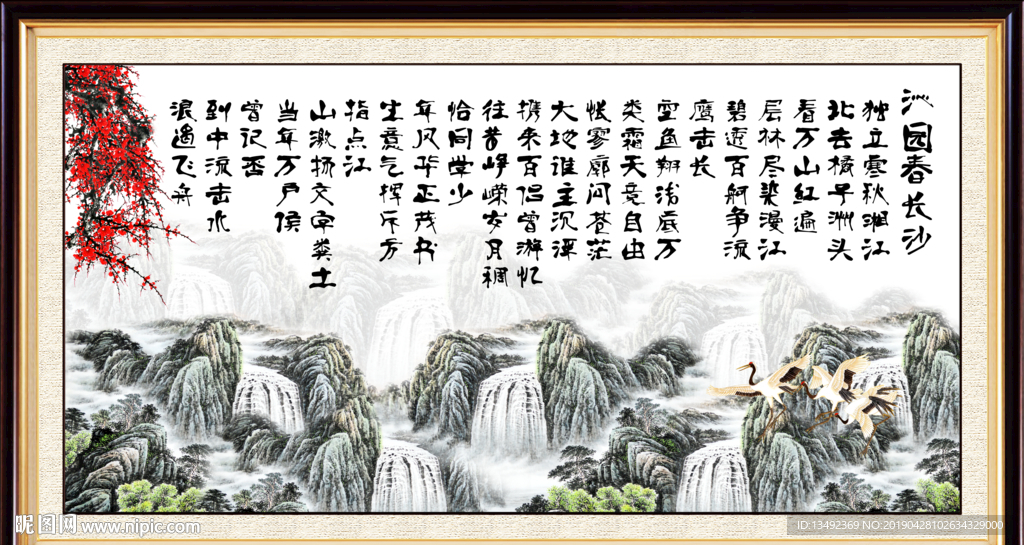 沁园春长沙
独立寒秋湘江
北去橘子洲头
看万山红遍
层林尽染漫江
碧透百舸争流
鹰击长
空鱼翔浅底万
类霜天竞自由
怅寥廓问苍茫
大地谁主沉浮
携来百侣曾游忆
往昔峥嵘岁月稠
恰同学少
年风华正茂书
生意气挥斥方
指点江
山激扬文字粪土
当年万户侯
曾记否
到中流击水
浪遏飞舟
昵图网 www.nipic.com
ID:13492369 NO:20190428102634329000